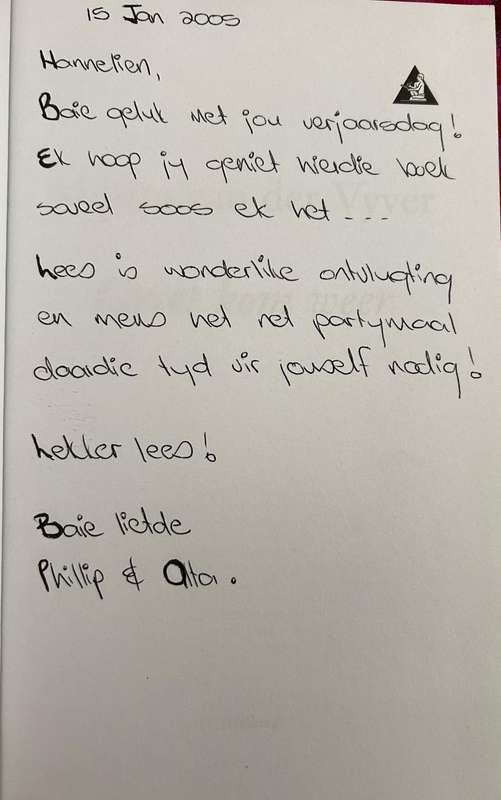 15 Jan 2005
Hannelien,
Baie geluk met jou verjaarsdag!
Ek hoop jy geniet hierdie boek
soveel soos ek het ---
Lees is wonderlike ontvlugting
en mens het net partymaal
daardie tyd vir jouself nodig!
Lekker lees!
Baie liefde
Phillip & Alta.